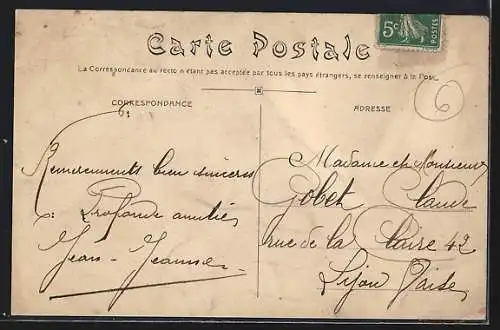 5c
POSTES
Carte Postale
La Correspondance au recto n'étant pas acceptée par tous les pays étrangers, se renseigner à la Poste
CORRESPONDANCE
Remerciements bien sincères
Profonde amitié
Jean - Jeanne
ADRESSE
6
Madame et Monsieur
Gobet Claude
rue de la Claire 42
Lyon Vaise